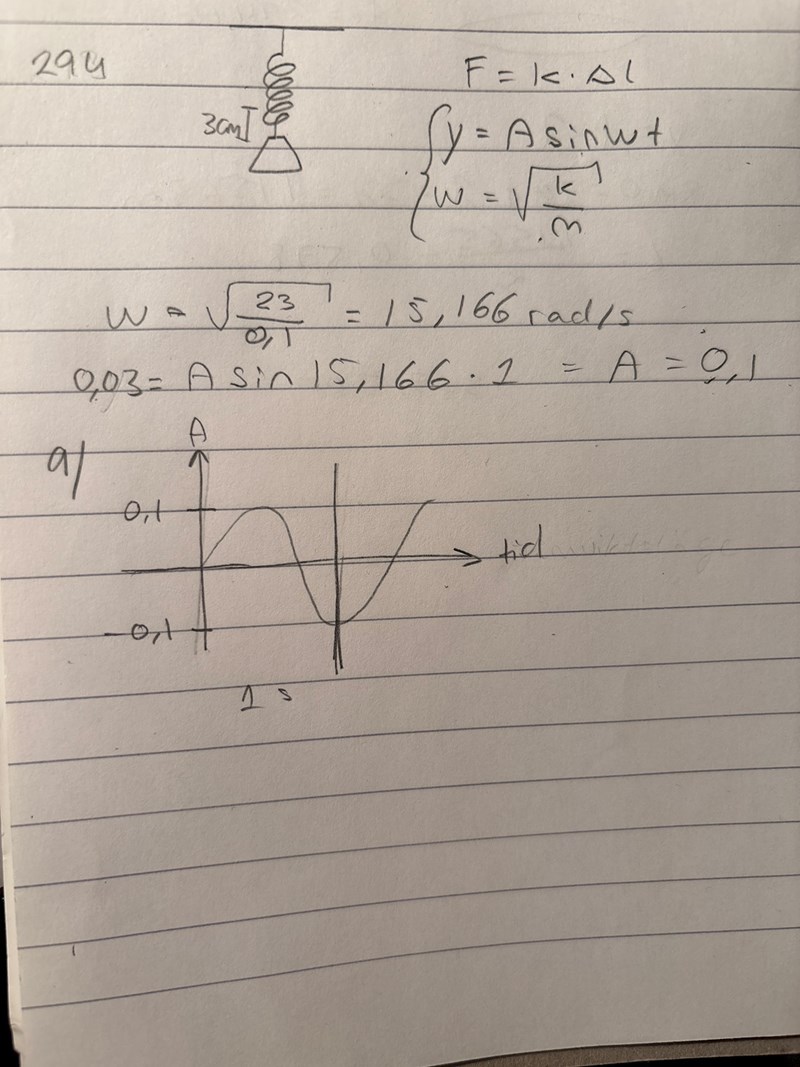 294
3cm
F = k · Δl
y = A sin ωt
ω = √(k/m)
ω = √(23/0,1) = 15,166 rad/s
0,03 = A sin 15,166 · 1 = A = 0,1
a/
A
0,1
tid
-0,1
1 s